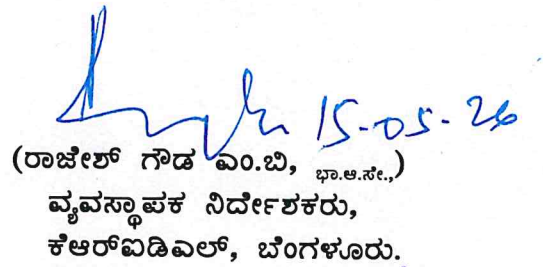 15-05-26
(ರಾಜೇಶ್ ಗೌಡ ಎಂ.ಬಿ, ಭಾ.ಆ.ಸೇ.,)
ವ್ಯವಸ್ಥಾಪಕ ನಿರ್ದೇಶಕರು,
ಕೆಆರ್‌ಐಡಿಎಲ್, ಬೆಂಗಳೂರು.